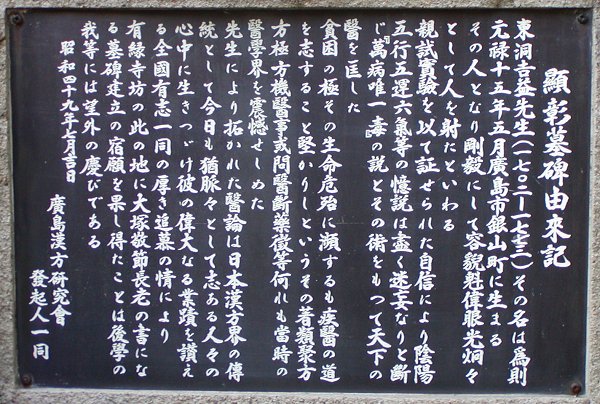 顯彰墓碑由來記
東洞吉益先生(一七〇二―一七七三)その名は爲則
元禄十五年五月廣島市銀山町に生まる
その人となり剛毅にして容貌魁偉眼光炯々
として人を射たといわる
親試實驗を以て証せられた自信により陰陽
五行五運六氣等の憶説は盡く迷妄なりと斷
じ『萬病唯一毒』の説とその術をもつて天下の
醫を匡した
貧困の極その生命危殆に瀕するも疾醫の道
を志すること堅かりしというその著類聚方
方極方機醫事或問醫斷藥徴等何れも當時の
醫學界を震憾せしめた
先生により拓かれた醫論は日本漢方界の傳
統として今日も猶脈々として志ある人々の
心中に生きつづけ彼の偉大なる業蹟を讃え
る全國有志一同の厚き追慕の情により
有緑寺坊の此の地に大塚敬節長老の言にな
る墓碑建立の宿願を果し得たことは後學の
我等には望外の慶びである
昭和四十九年七月吉日
廣島漢方研究會
發起人一同